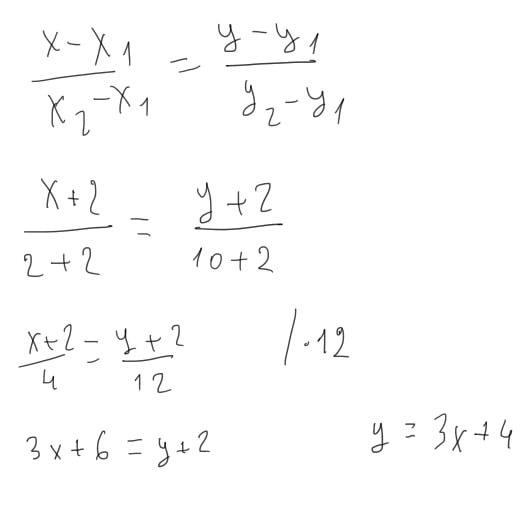 x-x₁/x₂-x₁ = y-y₁/y₂-y₁
x+2/2+2 = y+2/10+2
x+2/4 = y+2/12 /·12
3x+6 = y+2 y = 3x+4